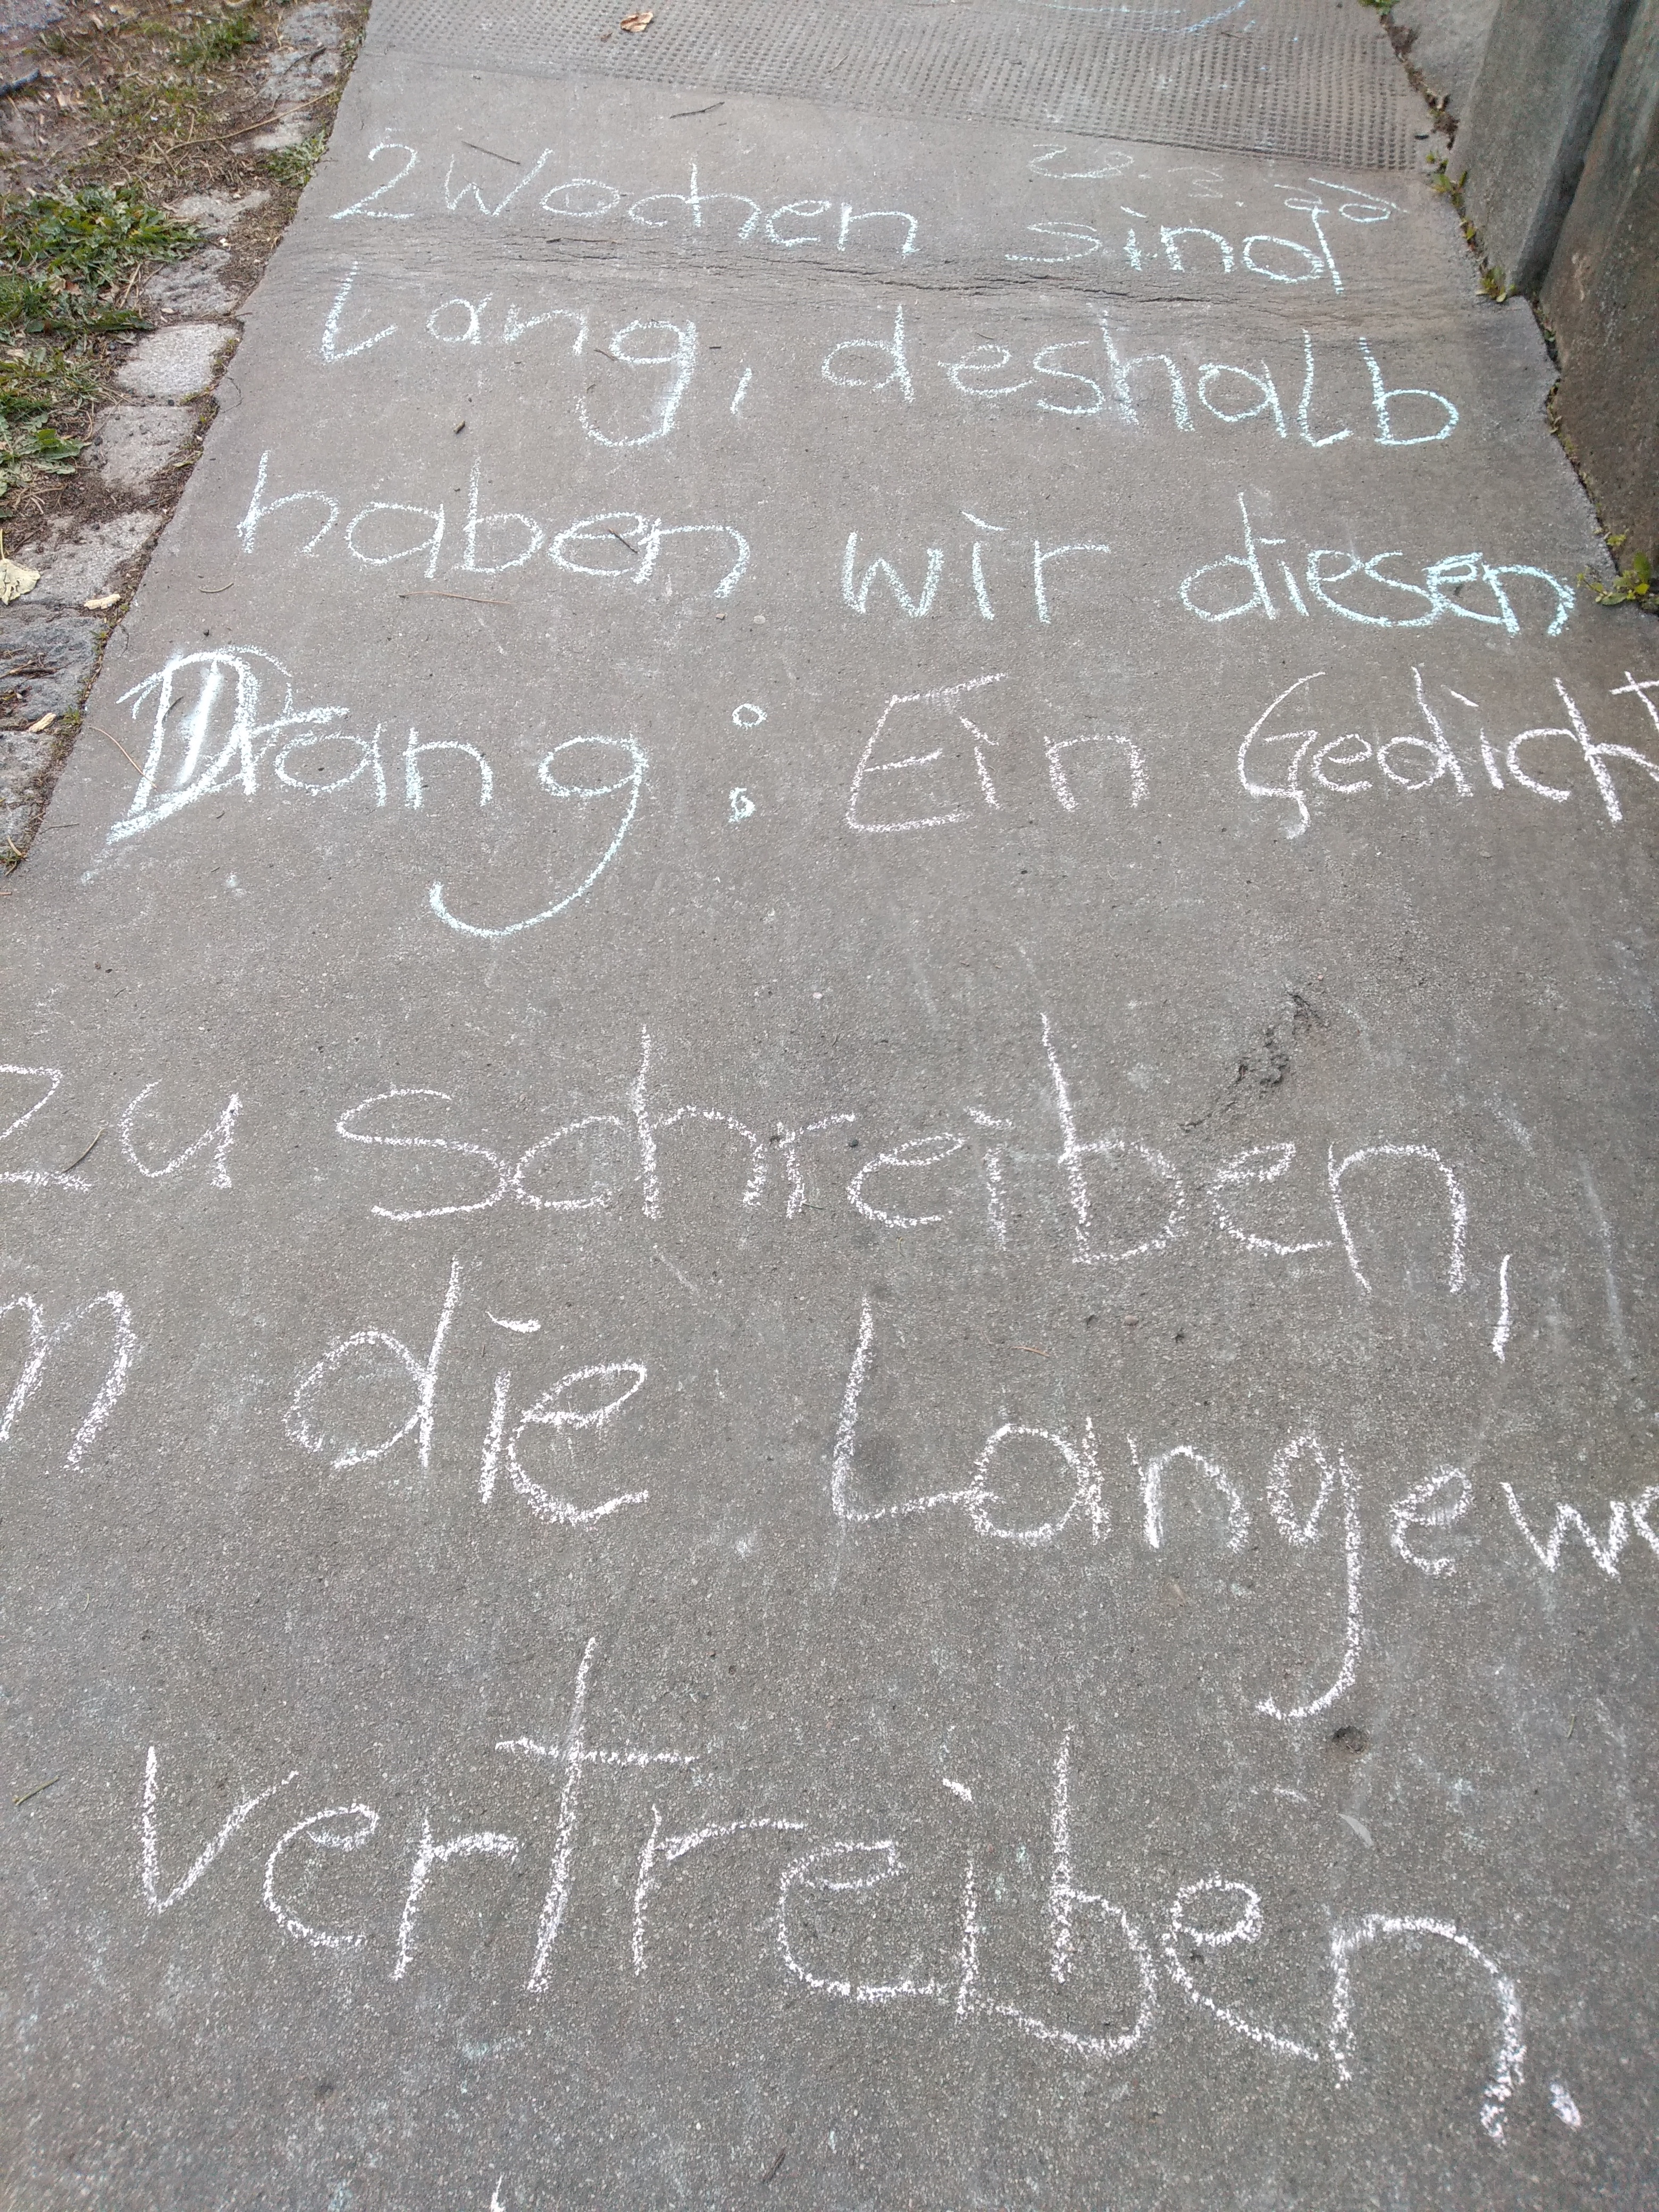 28.3.20
2 Wochen sind
Lang, deshalb
haben wir diesen
Drang: Ein Gedicht
zu schreiben,
m die Langewe
vertreiben.